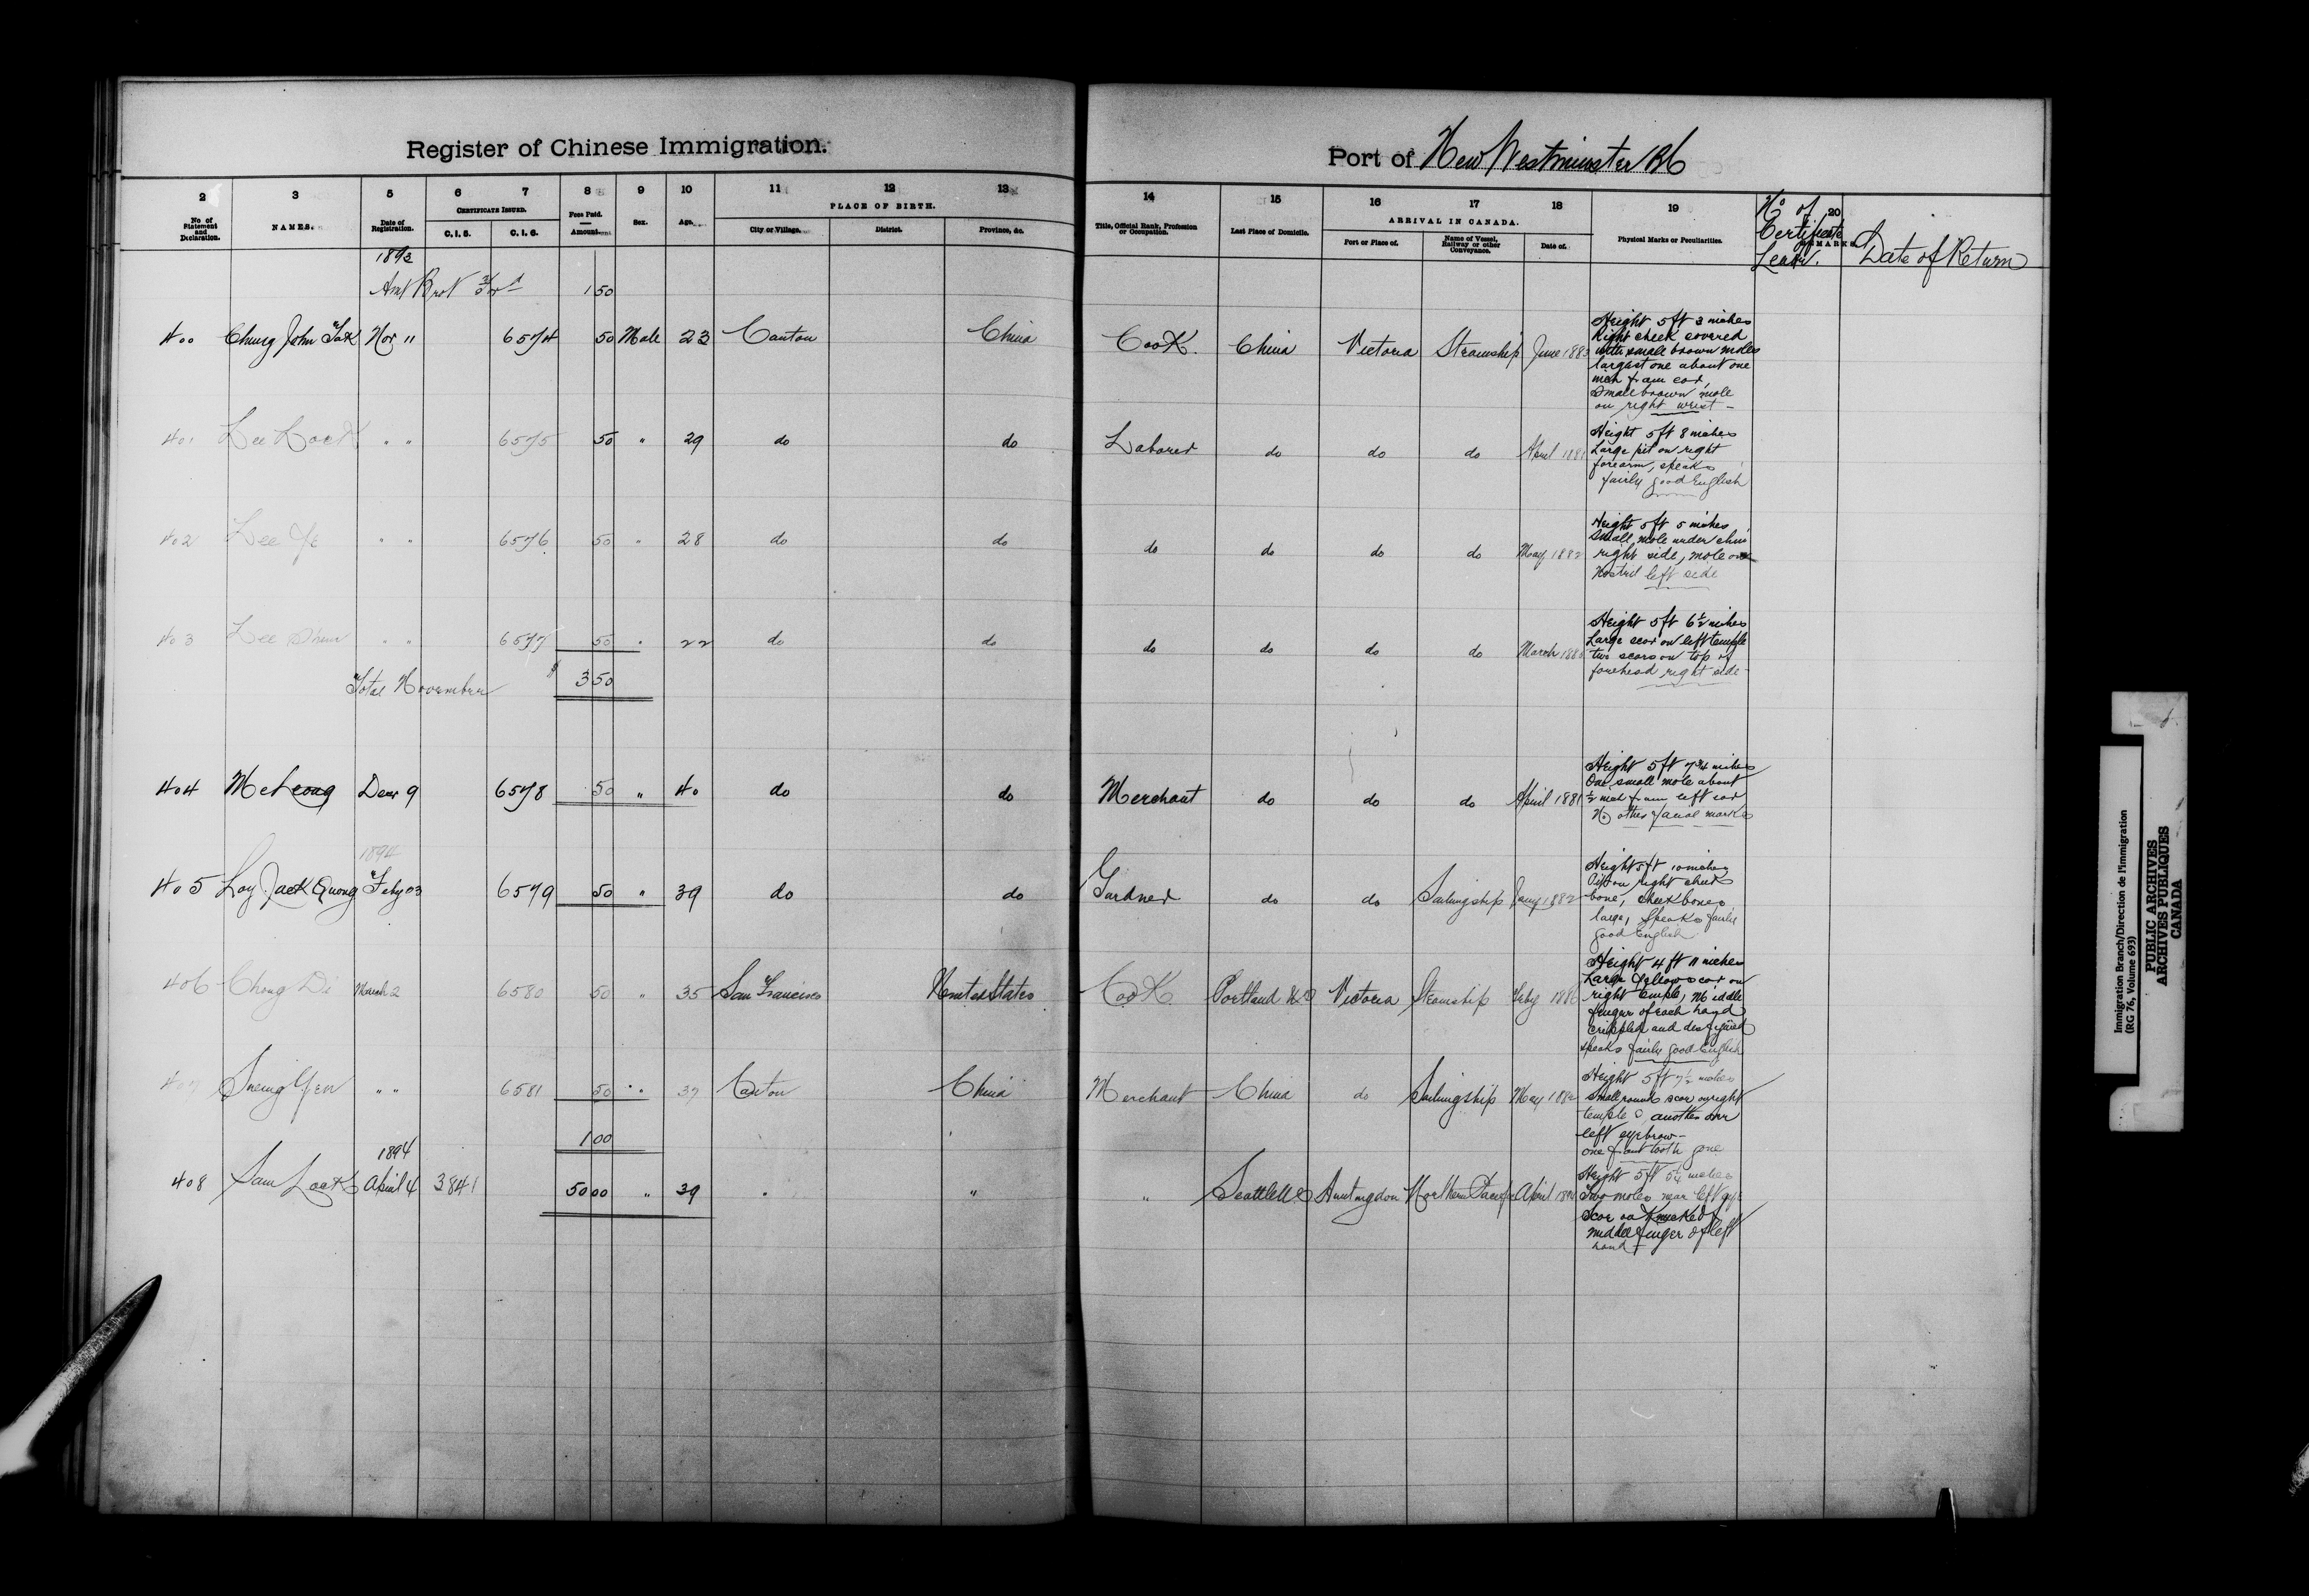 Register of Chinese Immigration.
Port of New Westminster BC
2 3 5 6 7 8 9 10 11 12 13 14 15 16 17 18 19 20
No of Statement and Declaration. NAMES. Date of Registration. CERTIFICATE ISSUED. C. I. 5. C. I. 6. Fees Paid. Amount. Sex. Age. PLACE OF BIRTH. City or Village. District. Province, &c. Title, Official Rank, Profession or Occupation. Last Place of Domicile. ARRIVAL IN CANADA. Port or Place of. Name of Vessel, Railway or other Conveyance. Date of. Physical Marks or Peculiarities. REMARKS
No of Certificate Leave. Date of Return
1893
Amt Brot For'd 1 50
400 Chung John Tak Nov 11 6574 50 Male 23 Canton China Cook. China Victoria Steamship June 1883 Height 5 ft 3 inches
Right cheek covered
with small brown moles
largest one about one
inch from ear,
Small brown mole
on right wrist -
401 Lee Lock " " 6575 50 " 29 do do Laborer do do do April 1881 Height 5 ft 8 inches
Large pit on right
forearm, speaks
fairly good English
402 Lee " " 6576 50 " 28 do do do do do do May 1882 Height 5 ft 5 inches
Small mole under chin
right side, mole on
Nostril left side
403 Lee " " 6577 50 " 22 do do do do do do March 188 Height 5 ft 6½ inches
Large scar on left temple
two scars on top of
forehead right side
Total November $ 3 50
404 Me Leong Decr 9 6578 50 " 40 do do Merchant do do do April 1881 Height 5 ft 7¾ inches
One small mole about
½ inch from left ear
No other facial marks
1894
405 Loy Jack Quong Feby 03 6579 50 " 39 do do Gardner do do Sailingship Jany 1882 Height 5 ft 10 inches
Pit on right cheek
bone, cheek bones
large, Speaks fairly
good English
406 Chong Di March 2 6580 50 " 35 San Francisco United States Cook Portland Victoria Steamship Feby 1886 Height 4 ft 11 inches
Large yellow scar on
right temple, Middle
fingers of each hand
crippled and disfigured
speaks fairly good English
407 Sneing Yen " " 6581 50 " 37 Canton China Merchant China do Sailingship May 188 Height 5 ft 7½ inches
Small round scar on right
temple & another over
left eyebrow -
one front tooth gone
1 00
1894
408 Sam Lock April 4 3841 50 00 " 39 " " " Seattle Huntingdon Northern Pacif April 189 Height 5 ft 5¼ inches
Two moles near left eye
Scar on Knuckle of
middle finger of left
hand
Immigration Branch/Direction de l'immigration
(RG 76, Volume 693)
PUBLIC ARCHIVES
ARCHIVES PUBLIQUES
CANADA